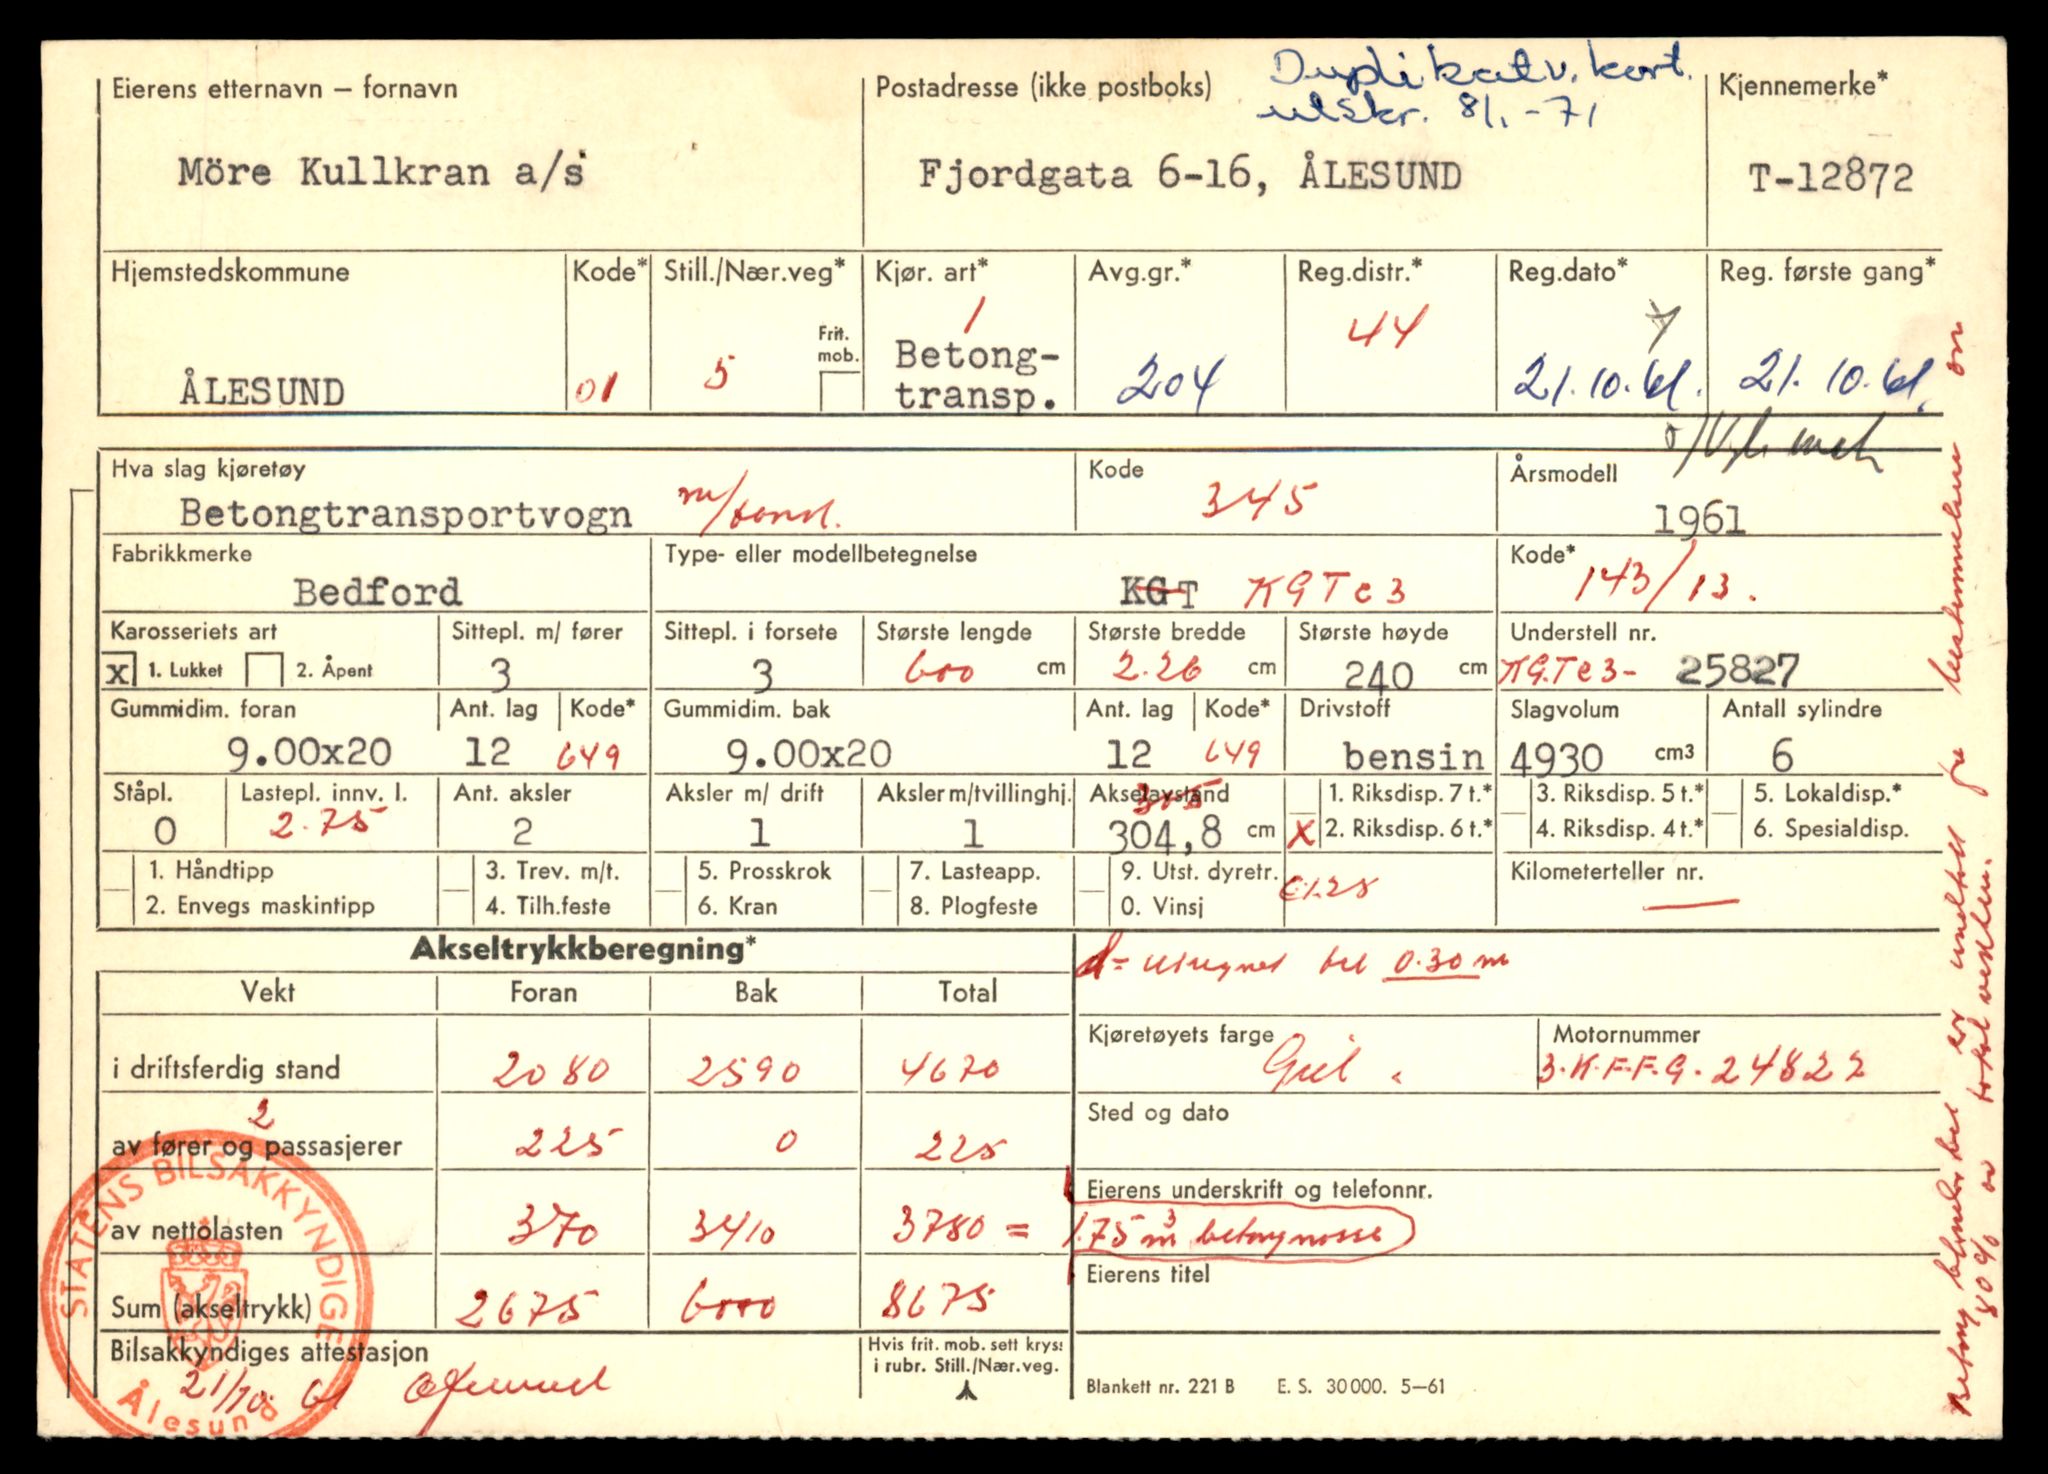 Duplikat v. kort.
utskr. 8/1.-71
Eierens etternavn – fornavn
Möre Kullkran a/s
Postadresse (ikke postboks)
Fjordgata 6-16, ÅLESUND
Kjennemerke*
T-12872
Hjemstedskommune
ÅLESUND
Kode*
01
Still./Nær.veg*
5
Frit.
mob.
Kjør. art*
1
Betong-
transp.
Avg.gr.*
204
Reg.distr.*
44
Reg.dato*
21.10.61.
Reg. første gang*
21.10.61.
Hva slag kjøretøy
Betongtransportvogn
Kode
345
Årsmodell
1961
Fabrikkmerke
Bedford
Type- eller modellbetegnelse
KGT KGTc3
Kode*
143/13.
Karosseriets art
x 1. Lukket 2. Åpent
Sittepl. m/ fører
3
Sittepl. i forsete
3
Største lengde
600 cm
Største bredde
2.26 cm
Største høyde
240 cm
Understell nr.
KGTc3- 25827
Gummidim. foran
9.00x20
Ant. lag
12
Kode*
649
Gummidim. bak
9.00x20
Ant. lag
12
Kode*
649
Drivstoff
bensin
Slagvolum
4930 cm3
Antall sylindre
6
Ståpl.
0
Lastepl. innv. l.
2.75
Ant. aksler
2
Aksler m/ drift
1
Aksler m/tvillinghj.
1
Akselavstand
305
304,8 cm
1. Riksdisp. 7 t.*
X 2. Riksdisp. 6 t.*
3. Riksdisp. 5 t.*
4. Riksdisp. 4 t.*
5. Lokaldisp.*
6. Spesialdisp.
1. Håndtipp
2. Envegs maskintipp
3. Trev. m/t.
4. Tilh.feste
5. Prosskrok
6. Kran
7. Lasteapp.
8. Plogfeste
9. Utst. dyretr.
0. Vinsj
Kilometerteller nr.
—
Akseltrykkberegning*
d = utregnet til 0.30 m
Vekt Foran Bak Total
i driftsferdig stand 2080 2590 4670
2
av fører og passasjerer 225 0 225
av nettolasten 370 3410 3780 = 1.75 m³ betongmasse
Sum (akseltrykk) 2675 6000 8675
Kjøretøyets farge
Gul.
Motornummer
3.K.F.F.G.24822
Sted og dato
Eierens underskrift og telefonnr.
Eierens titel
Bilsakkyndiges attestasjon
21/10 61
Hvis frit. mob. sett kryss
i rubr. Still./Nær.veg.
Blankett nr. 221 B E. S. 30000. 5–61
STATENS BILSAKKYNDIGE
Ålesund
80% av total vekten.